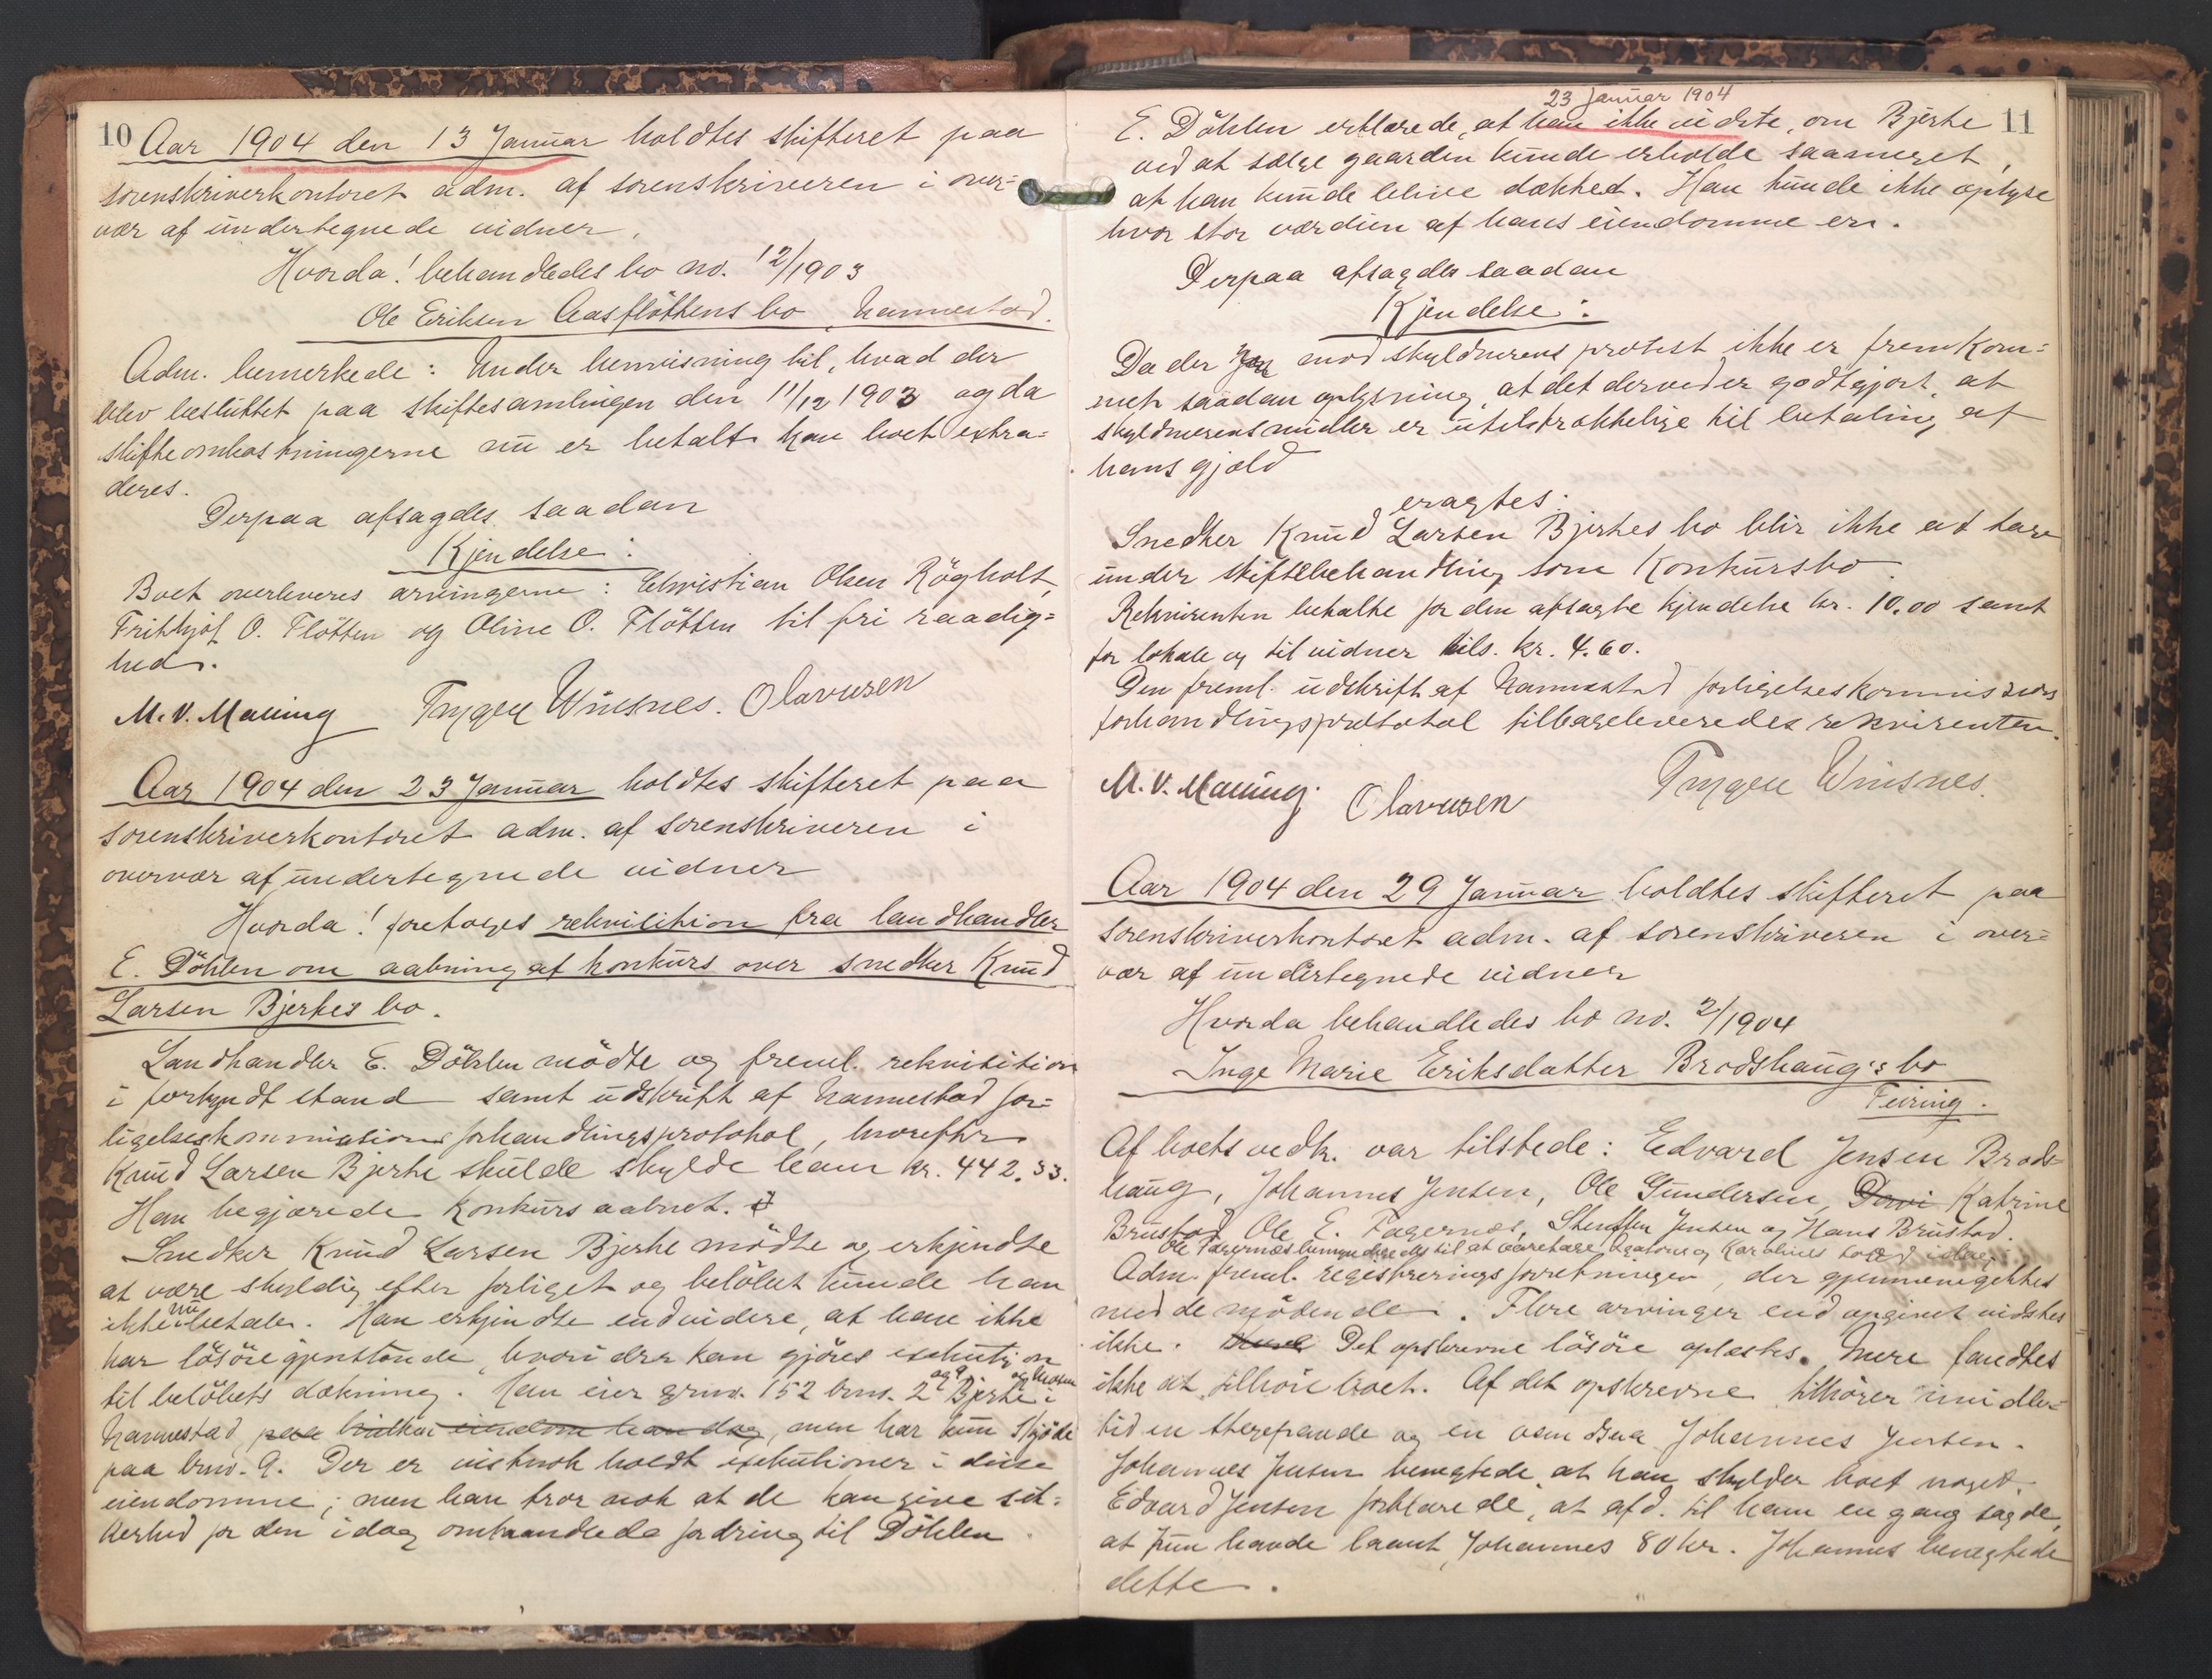 10
Aar 1904 den 13 Januar holdtes skifteret paa
sorenskriverkontoret adm. af sorenskriveren i over=
vær af undertegnede vidner.
Hvorda! behandledes bo no. 12/1903
Ole Eriksen Aasfløttens bo, Nannestad.
Adm. bemerkede: Under henvisning til, hvad der
blev besluttet paa skiftesamlingen den 11/12 1903 og da
skifteomkostningerne nu er betalt kan boet extra=
deres.
Derpaa afsagdes saadan
Kjendelse:
Boet overleveres arvingerne: Christian Olsen Røgholt,
Frithjof O. Fløtten og Oline O. Fløtten til fri raadig=
hed.
M.V. Mauing Trygve Wiisnes. Olavesen
Aar 1904 den 23 Januar holdtes skifteret paa
sorenskriverkontoret adm. af sorenskriveren i
overvær af undertegnede vidner
Hvorda! foretoges rekvisition fra landhandler
E. Döhlen om aabning af konkurs over snedker Knud
Larsen Bjerkes bo.
Landhandler E. Döhlen mødte og freml. rekvisition
i forkyndt stand samt udskrift af Nannestad for=
ligelseskommissions forhandlingsprotokol, hvorefter
Knud Larsen Bjerke skulde skylde ham kr. 442.33.
Han begjærede konkurs aabnet.
Snedker Knud Larsen Bjerke mødte og erkjendte
at være skyldig efter forliget og beløbet kunde han
ikke nu betale. Han erkjendte endvidere, at han ikke
har løsøregjenstande, hvori der kan gjøres exekution
til beløbets dækning. Han eier grno. 152 brno. 2 og 9 Bjerke i
Nannestad, paa hvilken eiendom han dog, men har kun skjøde
paa brno. 9. Der er visknok holdt exekutioner i disse
eiendomme; men han tror nok at de kan give sik=
kerhed for den idag omhandlede fordring til Döhlen.
23 Januar 1904
11
E. Döhlen erklærede, at han ikke vidste, om Bjerke
ved at sælge gaarden kunde erholde saameget,
at han kunde blive dækket. Han kunde ikke oplyse
hvor stor værdien af hans eiendomme er.
Derpaa afsagdes saadan
Kjendelse:
Da der mod skyldnerens protest ikke er fremkom=
met saadan oplysning, at det derved er godtgjort, at
skyldnerens midler er utilstrækkelige til betaling af
hans gjæld
eragtes:
Snedker Knud Larsen Bjerkes bo blir ikke at tage
under skiftebehandling som konkursbo.
Rekvirenten betalte for den afsagte kjendelse kr. 10.00 samt
for lokale og til vidner tils. kr. 4.60.
Den freml. udskrift af Nannestad forligelseskommissions
forhandlingsprotokol tilbageleveredes rekvirenten.
M.V. Mauing. Olavesen Trygve Wiisnes.
Aar 1904 den 29 Januar holdtes skifteret paa
sorenskriverkontoret adm. af sorenskriveren i over=
vær af undertegnede vidner
Hvorda behandledes bo no. 2/1904
Inge Marie Eriksdatter Brodshaug's bo
Feiring.
Af boets vedk. var tilstede: Edvard Jensen Brods=
haug, Johannes Jensen, Ole Gundersen, Katrine
Brustad, Ole E. Fagernæs, Steffen Jensen og Hans Brustad.
Ole Fagernæs bemyndigedes til at varetage og Karolines tarv idag.
Adm. freml. registreringsforretningen, der gjennemgikkes
med de mødende. Flere arvinger end opgivet vidstes
ikke. Det opskrevne løsøre oplæstes. Mere fandtes
ikke at tilhøre boet. Af det opskrevne tilhører imidler=
tid en stegepande og en Johannes Jensen.
Johannes Jensen benegtede, at han skylder boet noget.
Edvard Jensen forklarede, at afd. til ham en gang sagde,
at hun havde laant Johannes 80 kr. Johannes benegtede
dette.